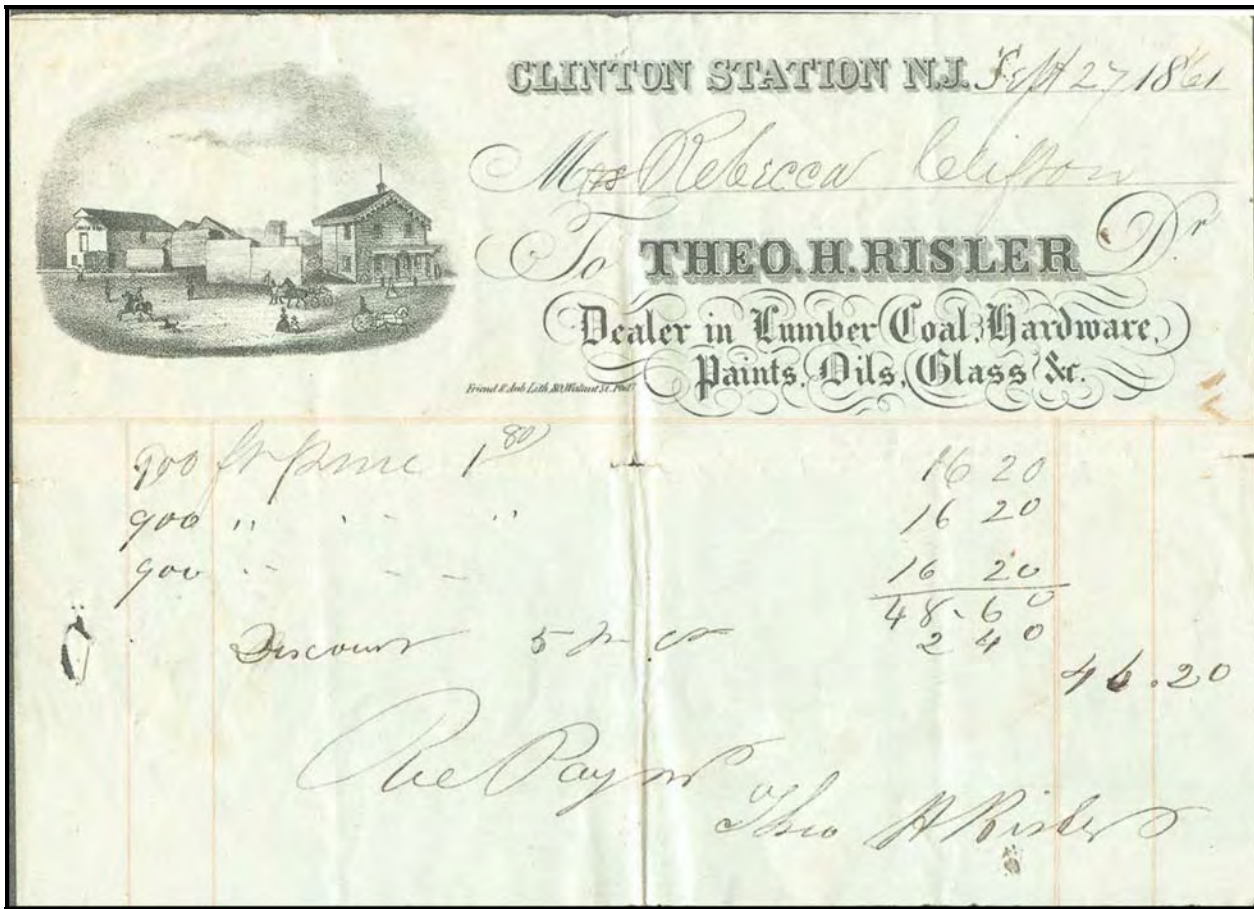 CLINTON STATION N.J. Sept 27 1861
Mrs Rebecca Clifton
To THEO. H. RISLER Dr
Dealer in Lumber, Coal, Hardware,
Paints, Oils, Glass &c.
Friend & Aub Lith. 80 Walnut St. Phil
900 ft 1 80 16 20
900 " " " 16 20
900 16 20
48.60
Discount 5 2 40
46.20
Rec Paymt
Theo H Risler